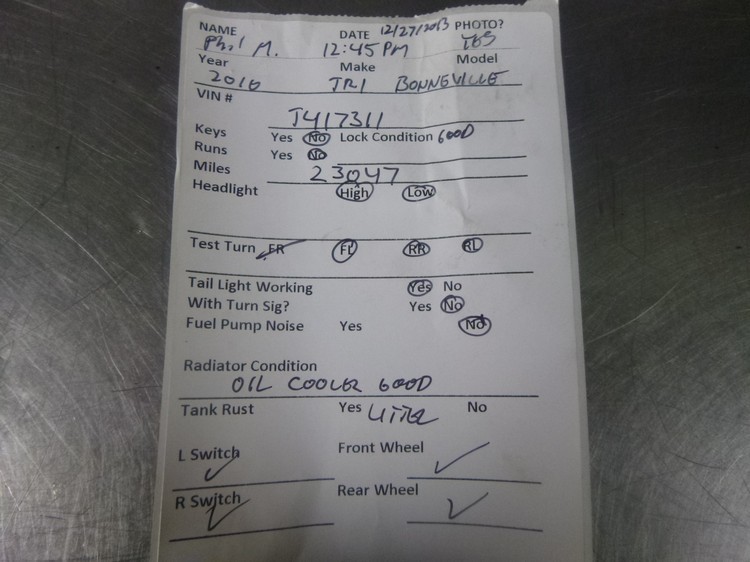 NAME DATE 12/27/2013 PHOTO?
Phil M. 12:45 PM YES
Year Make Model
2010 TRI BONNEVILLE
VIN #
J417311
Keys Yes No Lock Condition GOOD
Runs Yes No
Miles 23047
Headlight High Low
Test Turn FR FL RR RL
Tail Light Working Yes No
With Turn Sig? Yes No
Fuel Pump Noise Yes No
Radiator Condition
OIL COOLER GOOD
Tank Rust Yes LITTLE No
L Switch Front Wheel
R Switch Rear Wheel